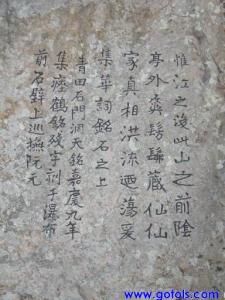 惟江之後此山之前陰
亭外爽藏仙仙
家真相洪流迴蕩爰
集華詞銘石之上
青田石門洞天銘嘉慶九年
集瘞鶴銘殘字刊于瀑布
前石壁上巡撫阮元
www.gotqls.com